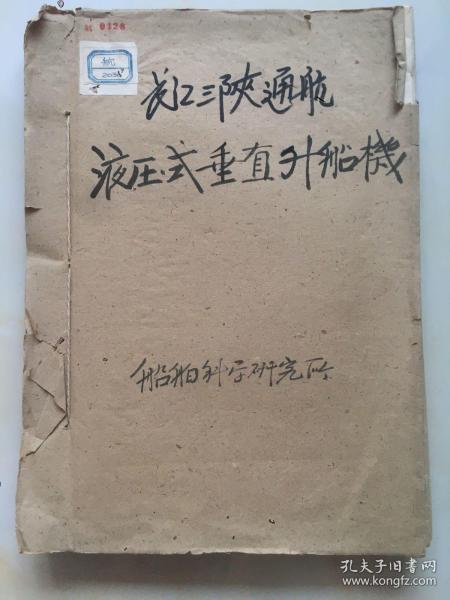 0126
长江三陕通航
液压式垂直升船機
船舶科学研究所
孔夫子旧书网
www.kongfz.com